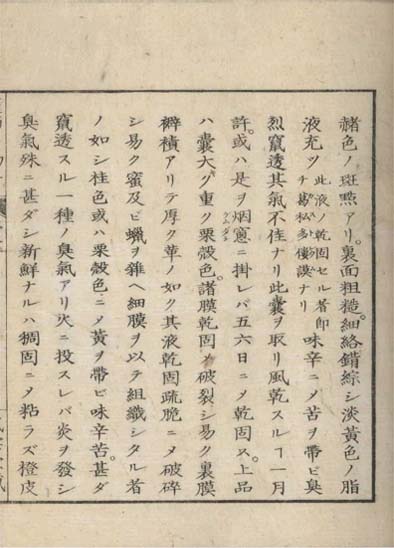 赭色ノ斑㸃アリ。裏面粗糙。細絡錯綜シ淡黃色ノ脂
液充ツ此液ノ乾固セル者即チ私多僂謨ナリ味辛ニ〆苦ヲ帶ビ臭
烈竄透其氣不佳ナリ此囊ヲ取リ風乾スルヿ一月
許。或ハ是ヲ烟窻ニ掛レバ五六日ニ〆乾固ス。上品
ハ囊大ダ重ク栗殼色。諸膜乾固〆破裂シ易ク裏膜
襞積アリテ厚ク革ノ如ク其液乾固疏脆ニ〆破碎
シ易ク蜜及ビ蠟ヲ雜ヘ細膜ヲ以テ組織シタル者
ノ如シ桂色或ハ栗殼色ニ〆黃ヲ帶ビ味辛苦。甚ダ
竄透スル一種ノ臭氣アリ火ニ投スレバ炎ヲ發シ
臭氣殊ニ甚ダシ新鮮ナルハ稠固ニ〆粘ラズ橙皮